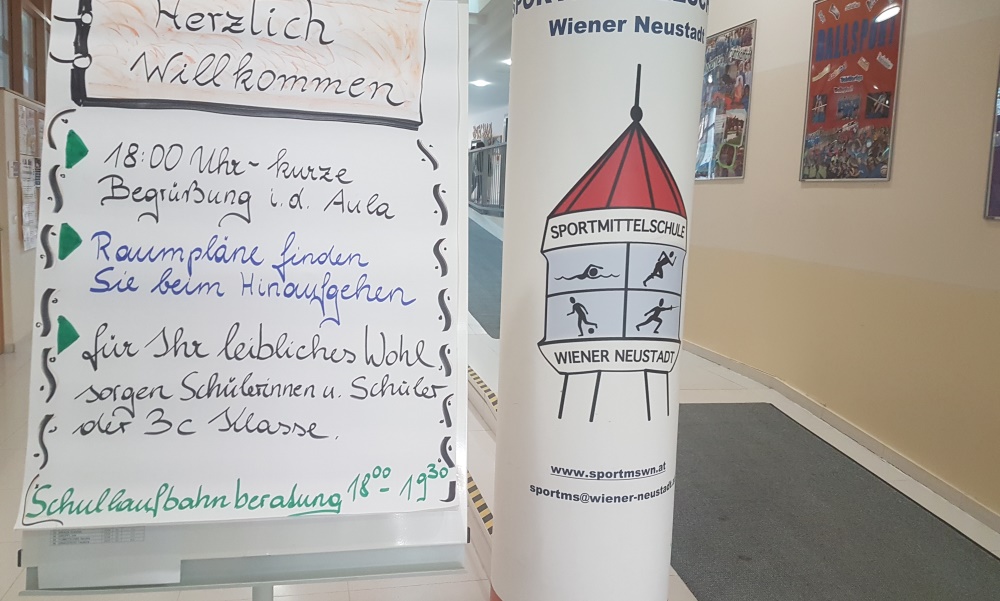 Herzlich
Willkommen
18:00 Uhr - kurze
Begrüßung i.d. Aula
Raumpläne finden
Sie beim Hinaufgehen
für Ihr leibliches Wohl
sorgen Schülerinnen u. Schüler
der 3c Klasse.
Schullaufbahnberatung 18⁰⁰ - 19³⁰
Wiener Neustadt
SPORTMITTELSCHULE
WIENER NEUSTADT
www.sportmswn.at
sportms@wiener-neustadt.
BALLSPORT